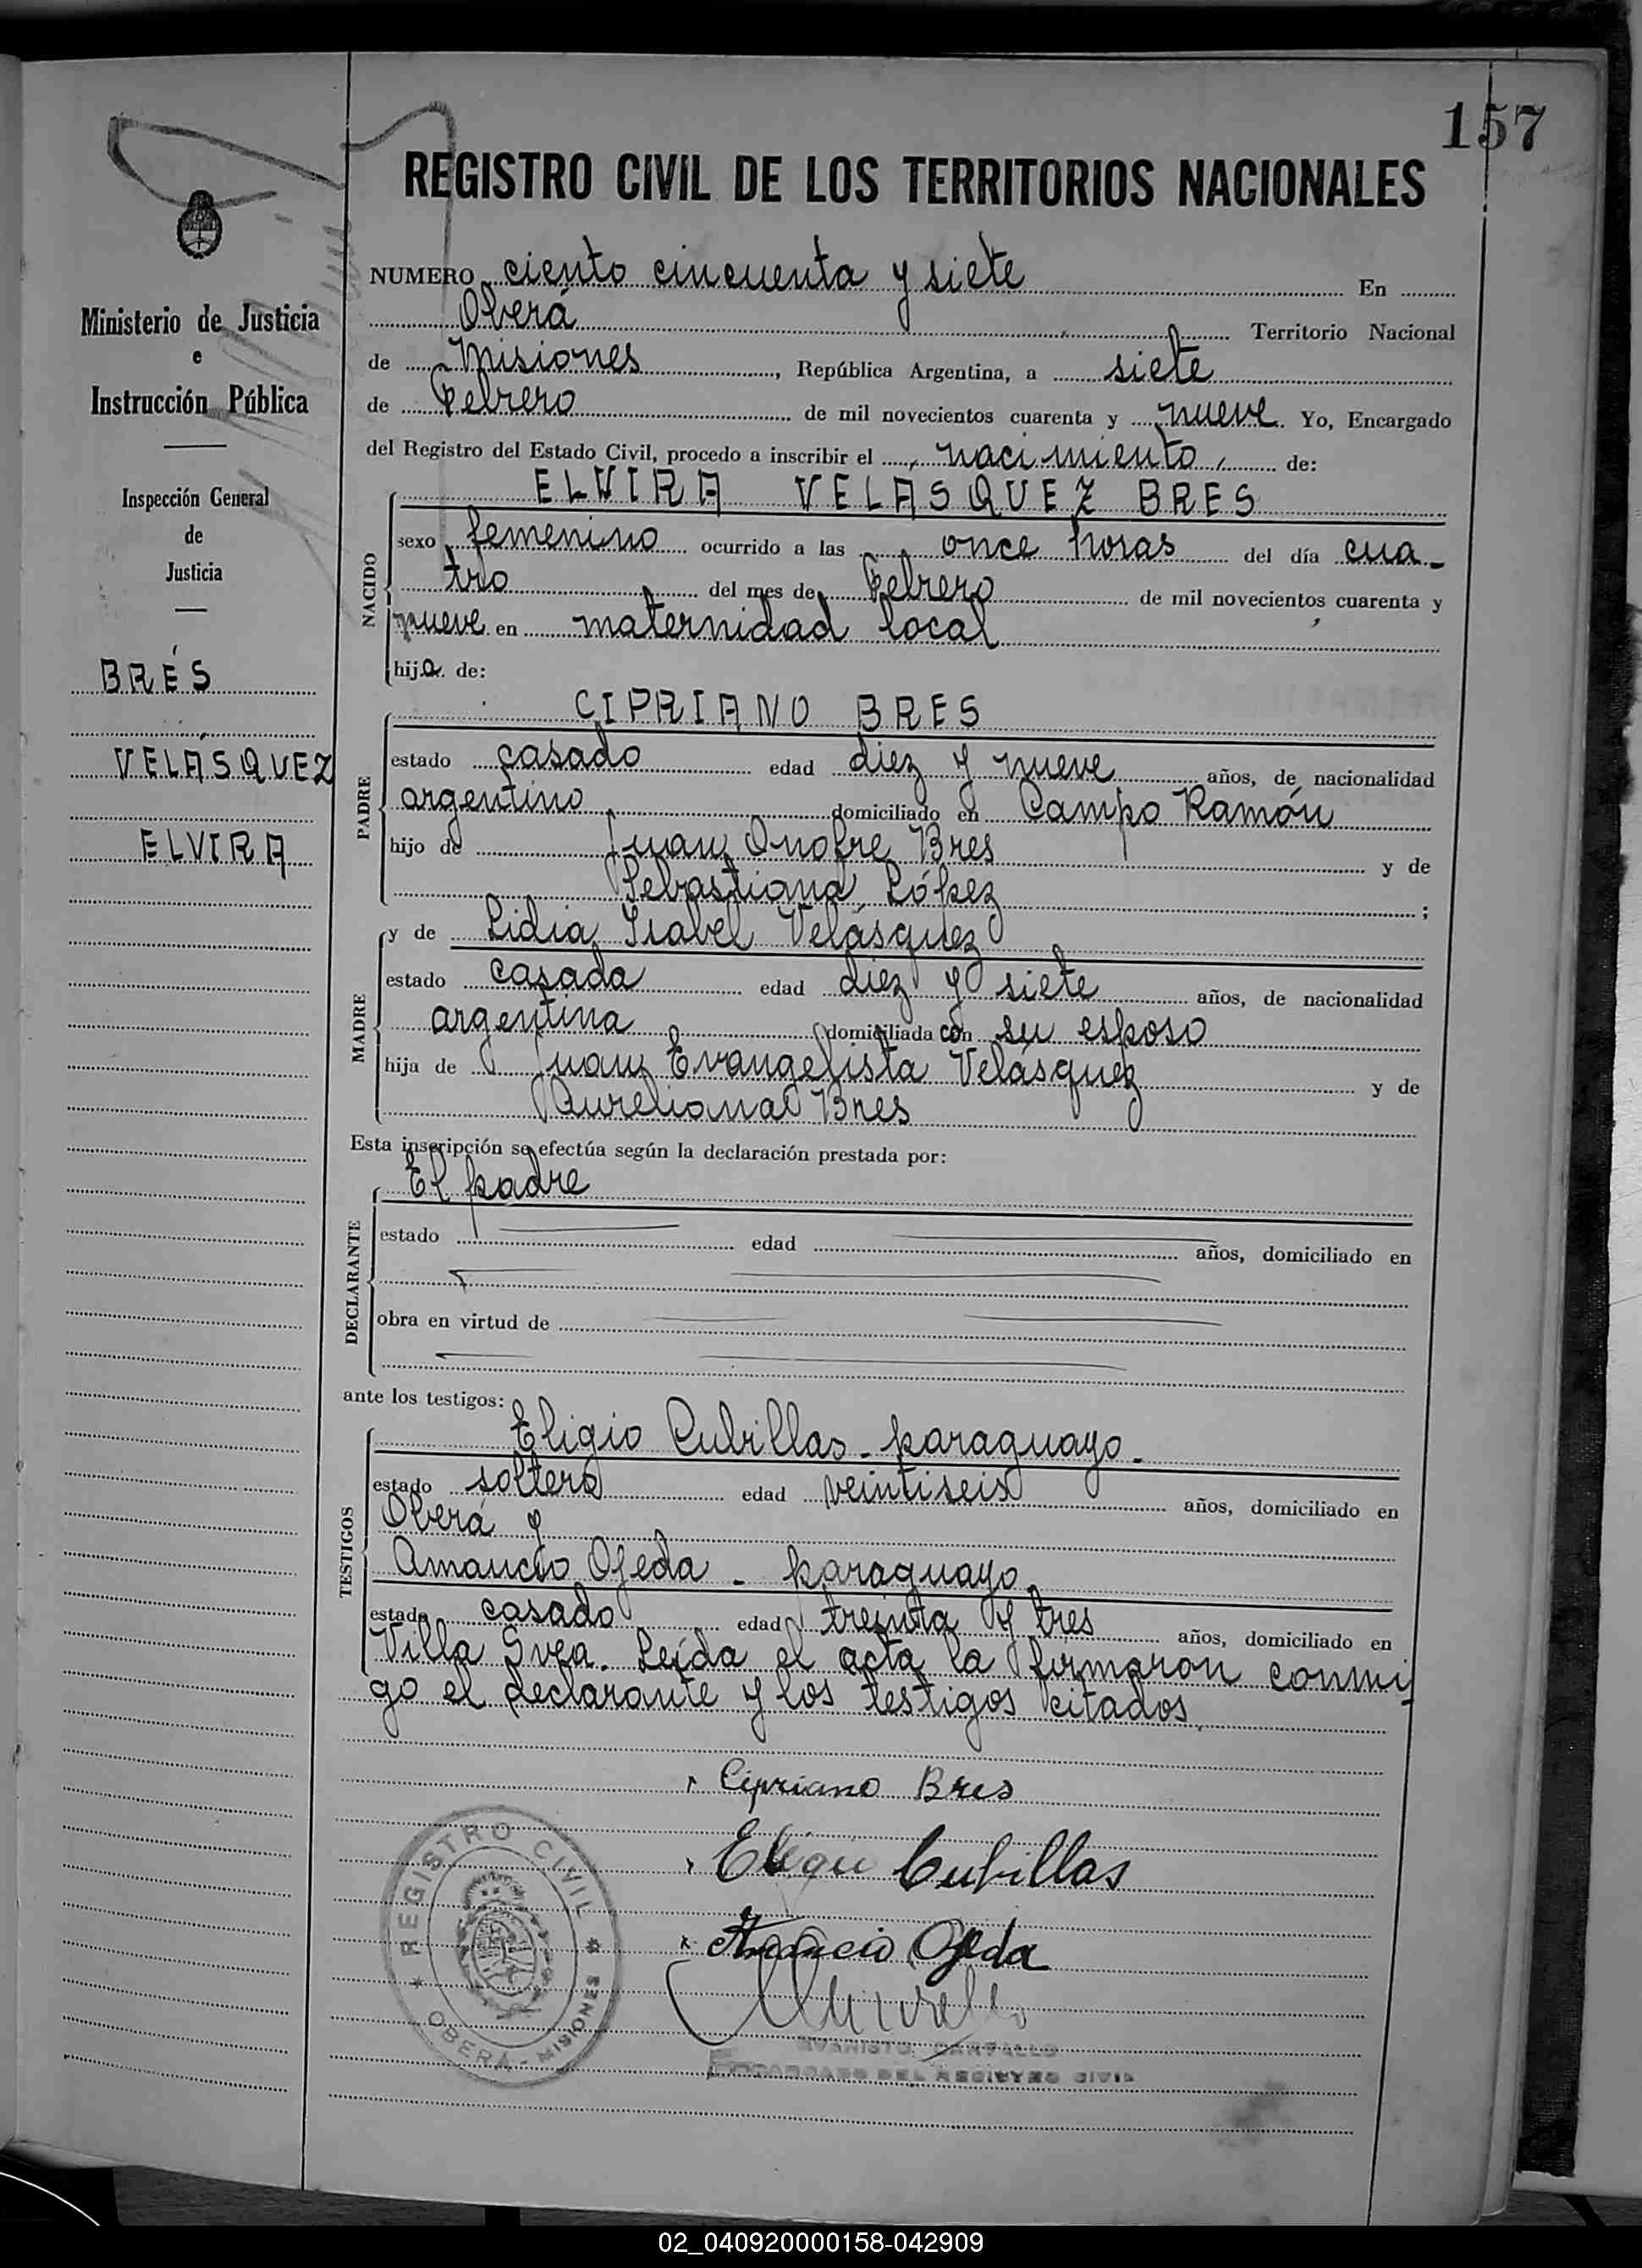 157
REGISTRO CIVIL DE LOS TERRITORIOS NACIONALES
Ministerio de Justicia
e
Instrucción Pública
Inspección General
de
Justicia
BRÉS
VELÁSQUEZ
ELVIRA
NUMERO ciento cincuenta y siete En
Oberá Territorio Nacional
de Misiones, República Argentina, a siete
de Febrero de mil novecientos cuarenta y nueve. Yo, Encargado
del Registro del Estado Civil, procedo a inscribir el nacimiento de:
NACIDO
ELVIRA VELASQUEZ BRES
sexo femenino ocurrido a las once horas del día cua-
tro del mes de Febrero de mil novecientos cuarenta y
nueve en maternidad local
hija de:
PADRE
CIPRIANO BRES
estado casado edad diez y nueve años, de nacionalidad
argentino domiciliado en Campo Ramón
hijo de Juan Onofre Bres y de
Sebastiana López ;
MADRE
y de Lidia Isabel Velásquez
estado casada edad diez y siete años, de nacionalidad
argentina domiciliada con su esposo
hija de Juan Evangelista Velásquez y de
Aureliana Bres
Esta inscripción se efectúa según la declaración prestada por:
DECLARANTE
El padre
estado edad años, domiciliado en
obra en virtud de
ante los testigos:
TESTIGOS
Eligio Cubillas - paraguayo -
estado soltero edad veintiseis años, domiciliado en
Oberá y
Amancio Ojeda - paraguayo
estado casado edad treinta y tres años, domiciliado en
Villa Svea. Leída el acta la firmaron conmi
go el declarante y los testigos citados
Cipriano Bres
Cubillas
Amancio Ojeda
REGISTRO CIVIL
OBERÁ - MISIONES
ENCARGADO DEL REGISTRO CIVIL
02_040920000158-042909